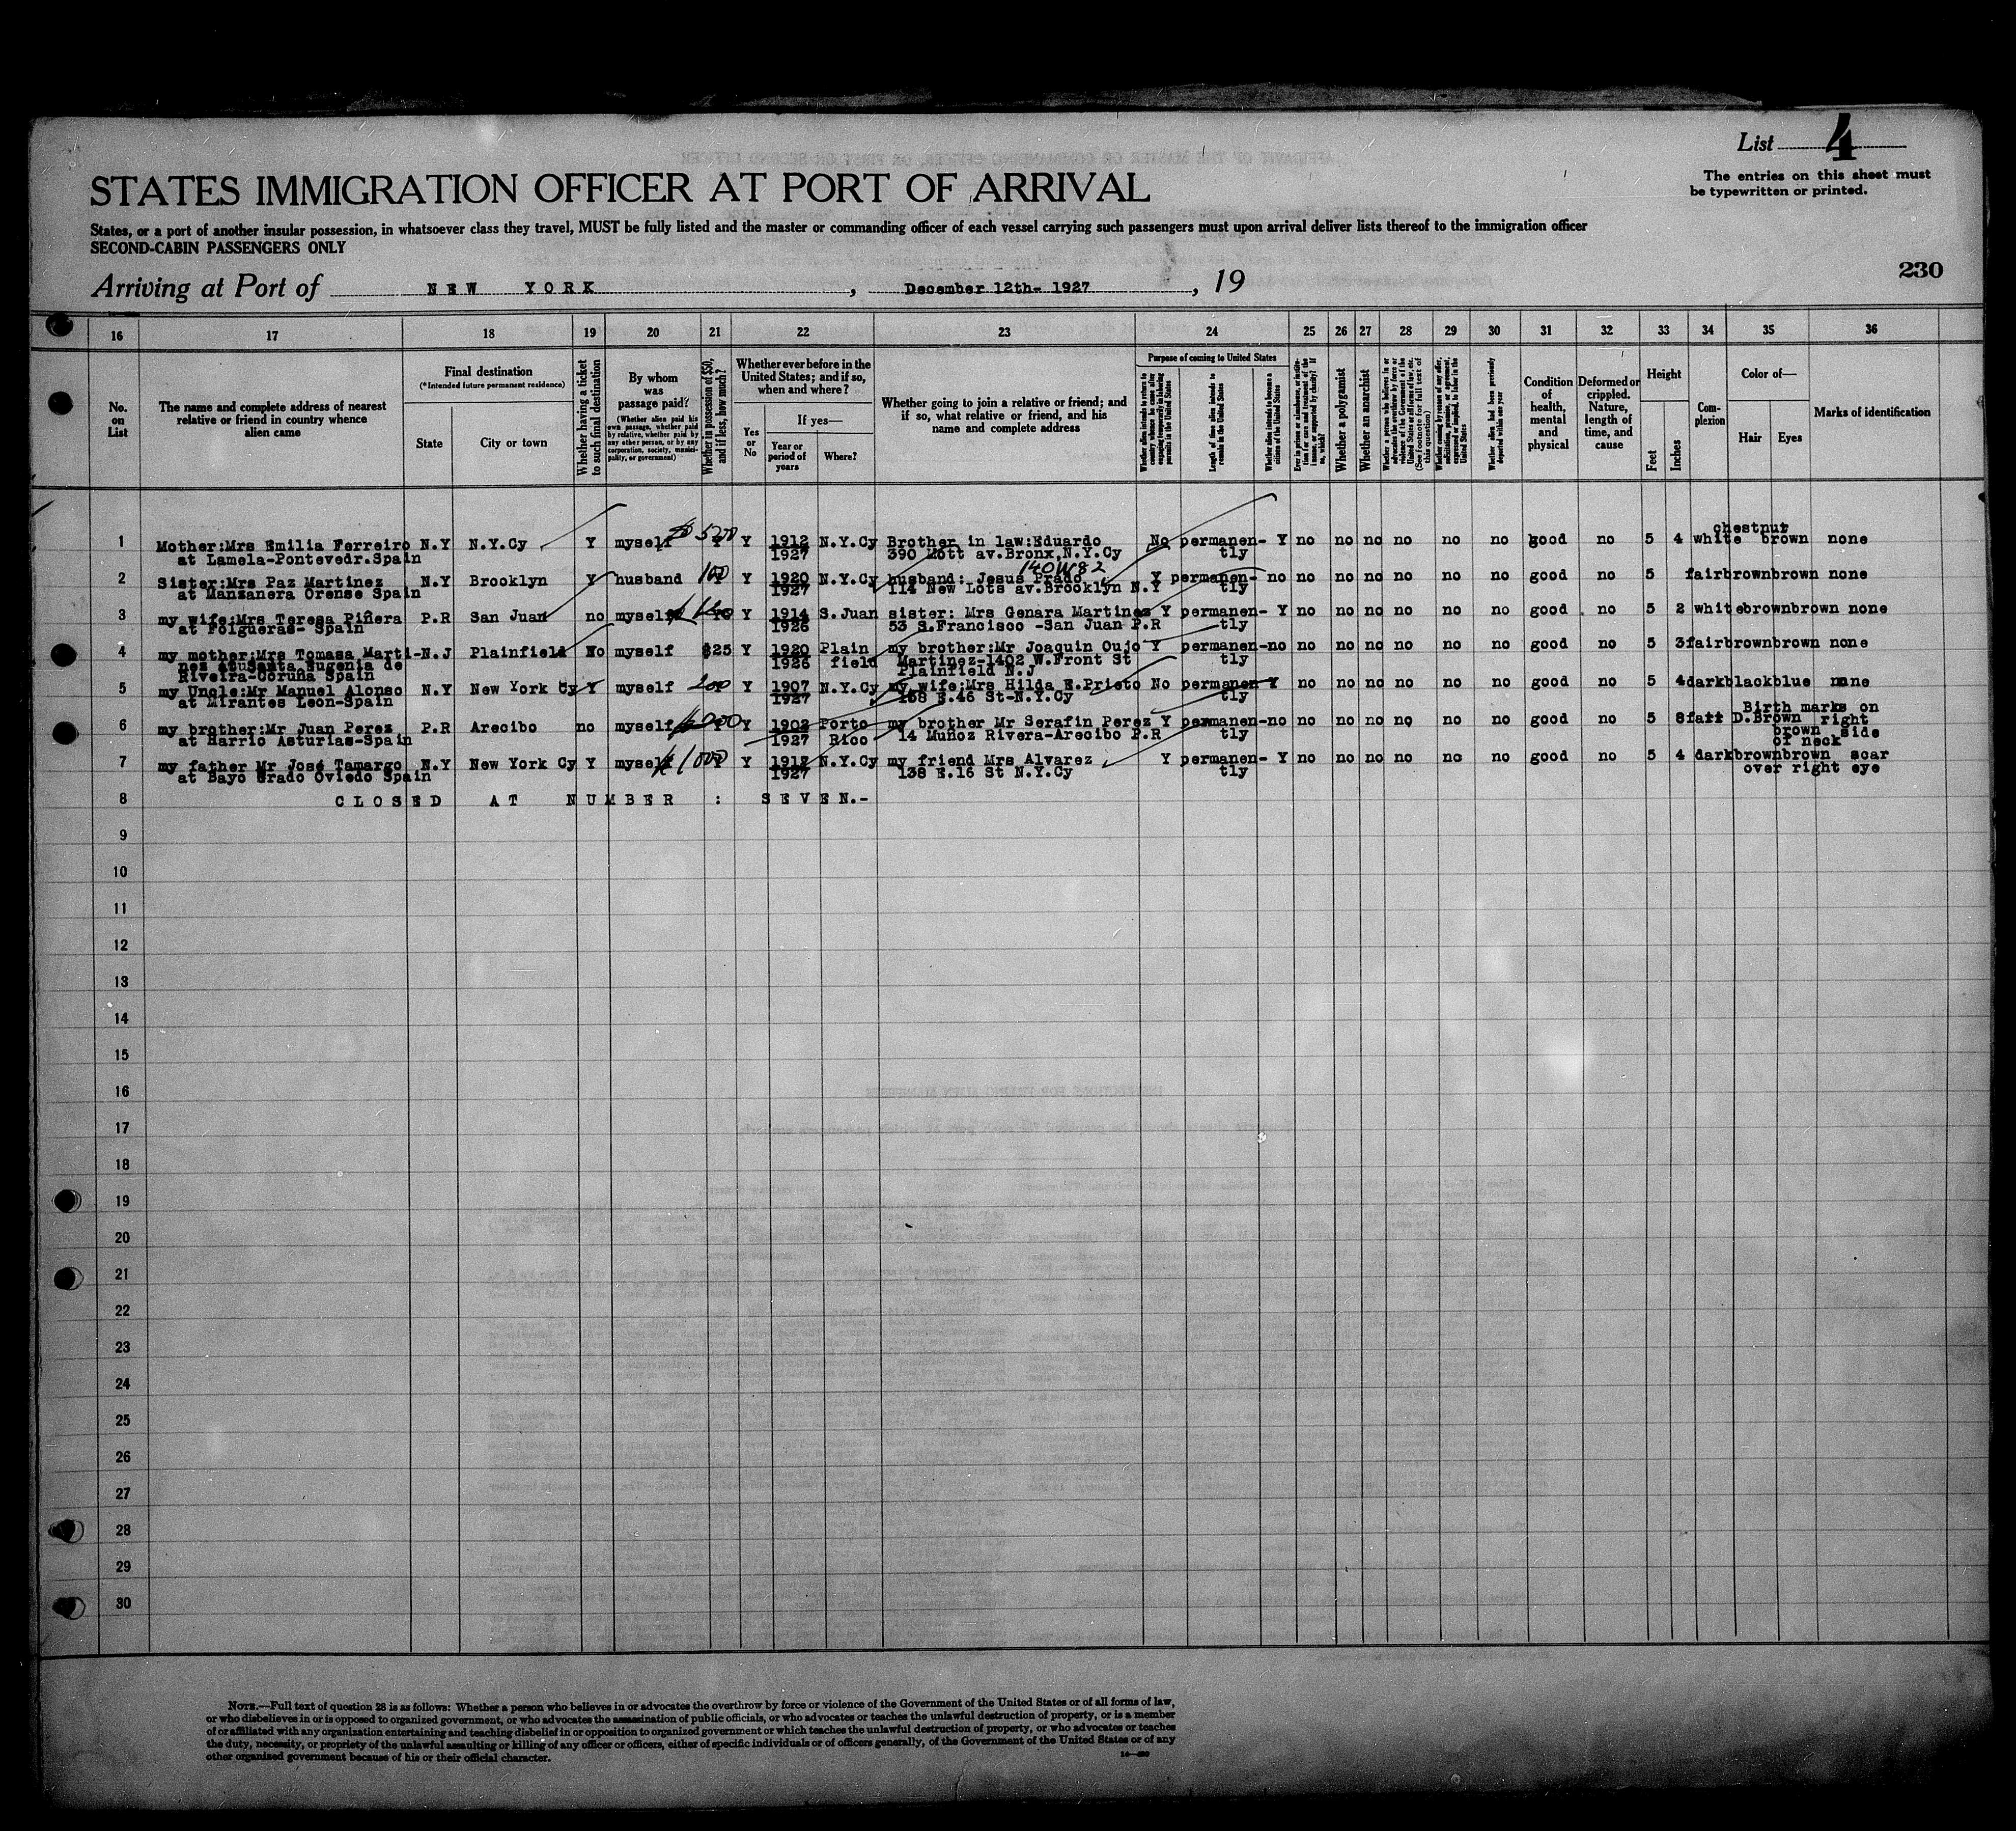 List 4
The entries on this sheet must
be typewritten or printed.
STATES IMMIGRATION OFFICER AT PORT OF ARRIVAL
States, or a port of another insular possession, in whatsoever class they travel, MUST be fully listed and the master or commanding officer of each vessel carrying such passengers must upon arrival deliver lists thereof to the immigration officer
SECOND-CABIN PASSENGERS ONLY
230
Arriving at Port of NEW YORK, December 12th- 1927, 19
16 17 18 19 20 21 22 23 24 25 26 27 28 29 30 31 32 33 34 35 36
No. on List
The name and complete address of nearest relative or friend in country whence alien came
Final destination
(*Intended future permanent residence)
State
City or town
Whether having a ticket to such final destination
By whom was passage paid?
(Whether alien paid his own passage, whether paid by relative, whether paid by any other person, or by any corporation, society, municipality, or government)
Whether in possession of $50, and if less, how much?
Whether ever before in the United States; and if so, when and where?
Yes or No
If yes—
Year or period of years
Where?
Whether going to join a relative or friend; and if so, what relative or friend, and his name and complete address
Purpose of coming to United States
Whether alien intends to return to country whence he came after engaging temporarily in laboring pursuits in the United States
Length of time alien intends to remain in the United States
Whether alien intends to become a citizen of the United States
Ever in prison or almshouse, or institution for care and treatment of the insane, or supported by charity? If so, which?
Whether a polygamist
Whether an anarchist
Whether a person who believes in or advocates the overthrow by force or violence of the Government of the United States or all forms of law, etc. (See footnote for full text of this question)
Whether coming by reason of any offer, solicitation, promise, or agreement, expressed or implied, to labor in the United States
Whether alien had been previously deported within one year
Condition of health, mental and physical
Deformed or crippled. Nature, length of time, and cause
Height
Feet
Inches
Complexion
Color of—
Hair
Eyes
Marks of identification
chestnut
1 Mother:Mrs Emilia Ferreiro N.Y N.Y.Cy Y myself $500 Y 1912 N.Y.Cy Brother in law:Eduardo No permanen- Y no no no no no no good no 5 4 white brown none
at Lamela-Pontevedr.Spain 1927 390 Mott av.Bronx,N.Y.Cy tly
140W82
2 Sister:Mrs Paz Martinez N.Y Brooklyn Y husband 100 Y 1920 N.Y.Cy husband: Jesus Prado Y permanen- no no no no no no no good no 5 fair brown brown none
at Manzanera Orense Spain 1927 114 New Lots av.Brooklyn N.Y tly
3 my wife:Mrs Teresa Piñera P.R San Juan no myself Y 1914 S.Juan sister: Mrs Genara Martinez Y permanen- Y no no no no no no good no 5 2 white brown brown none
at Folgueras- Spain 1926 53 S.Francisco -San Juan P.R tly
4 my mother:Mrs Tomasa Marti- N.J Plainfield No myself $25 Y 1920 Plain my brother:Mr Joaquin Oujo Y permanen- no no no no no no no good no 5 3 fair brown brown none
nez Santa Eugenia de 1926 field Martinez-1402 W.Front St tly
Riveira-Coruña Spain Plainfield N.J
5 my Uncle:Mr Manuel Alonso N.Y New York Cy Y myself 200 Y 1907 N.Y.Cy my wife:Mrs Hilda E.Prieto No permanen Y no no no no no no good no 5 4 dark black blue none
at Mirantes Leon-Spain 1927 E.46 St-N.Y.Cy tly
Birth marks on
6 my brother:Mr Juan Perez P.R Arecibo no myself Y 1902 Porto my brother Mr Serafin Perez Y permanen- no no no no no no no good no 5 8 fair D.Brown right
at Barrio Asturias-Spain 1927 Rico 14 Muñoz Rivera-Arecibo P.R tly brown side
of neck
7 my father Mr José Tamargo N.Y New York Cy Y myself $1000 Y 1912 N.Y.Cy my friend Mrs Alvarez Y permanen- Y no no no no no no good no 5 4 dark brown brown scar
at Bayo Grado Oviedo Spain 1927 138 E.16 St N.Y.Cy tly over right eye
8 CLOSED AT NUMBER : SEVEN.-
9
10
11
12
13
14
15
16
17
18
19
20
21
22
23
24
25
26
27
28
29
30
NOTE.—Full text of question 28 is as follows: Whether a person who believes in or advocates the overthrow by force or violence of the Government of the United States or of all forms of law,
or who disbelieves in or is opposed to organized government, or who advocates the assassination of public officials, or who advocates or teaches the unlawful destruction of property, or is a member
of or affiliated with any organization entertaining and teaching disbelief in or opposition to organized government or which teaches the unlawful destruction of property, or who advocates or teaches
the duty, necessity, or propriety of the unlawful assaulting or killing of any officer or officers, either of specific individuals or of officers generally, of the Government of the United States or of any
other organized government because of his or their official character.